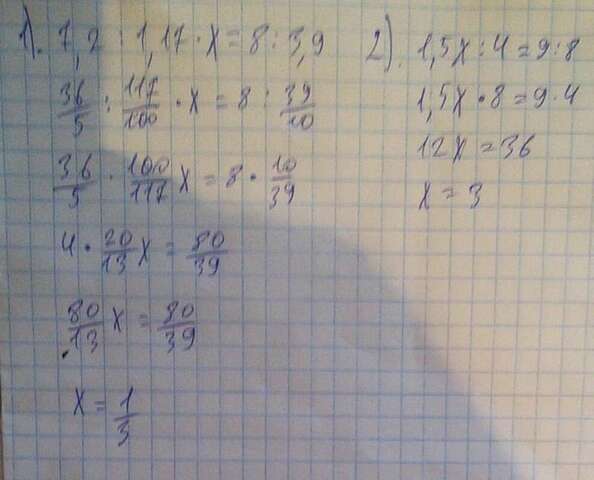 1). 7,2 : 1,17 · x = 8 : 3,9
36/5 : 117/100 · x = 8 : 39/10
36/5 · 100/117 x = 8 · 10/39
4 · 20/13 x = 80/39
80/13 x = 80/39
x = 1/3
2). 1,5x : 4 = 9 : 8
1,5x · 8 = 9 · 4
12x = 36
x = 3